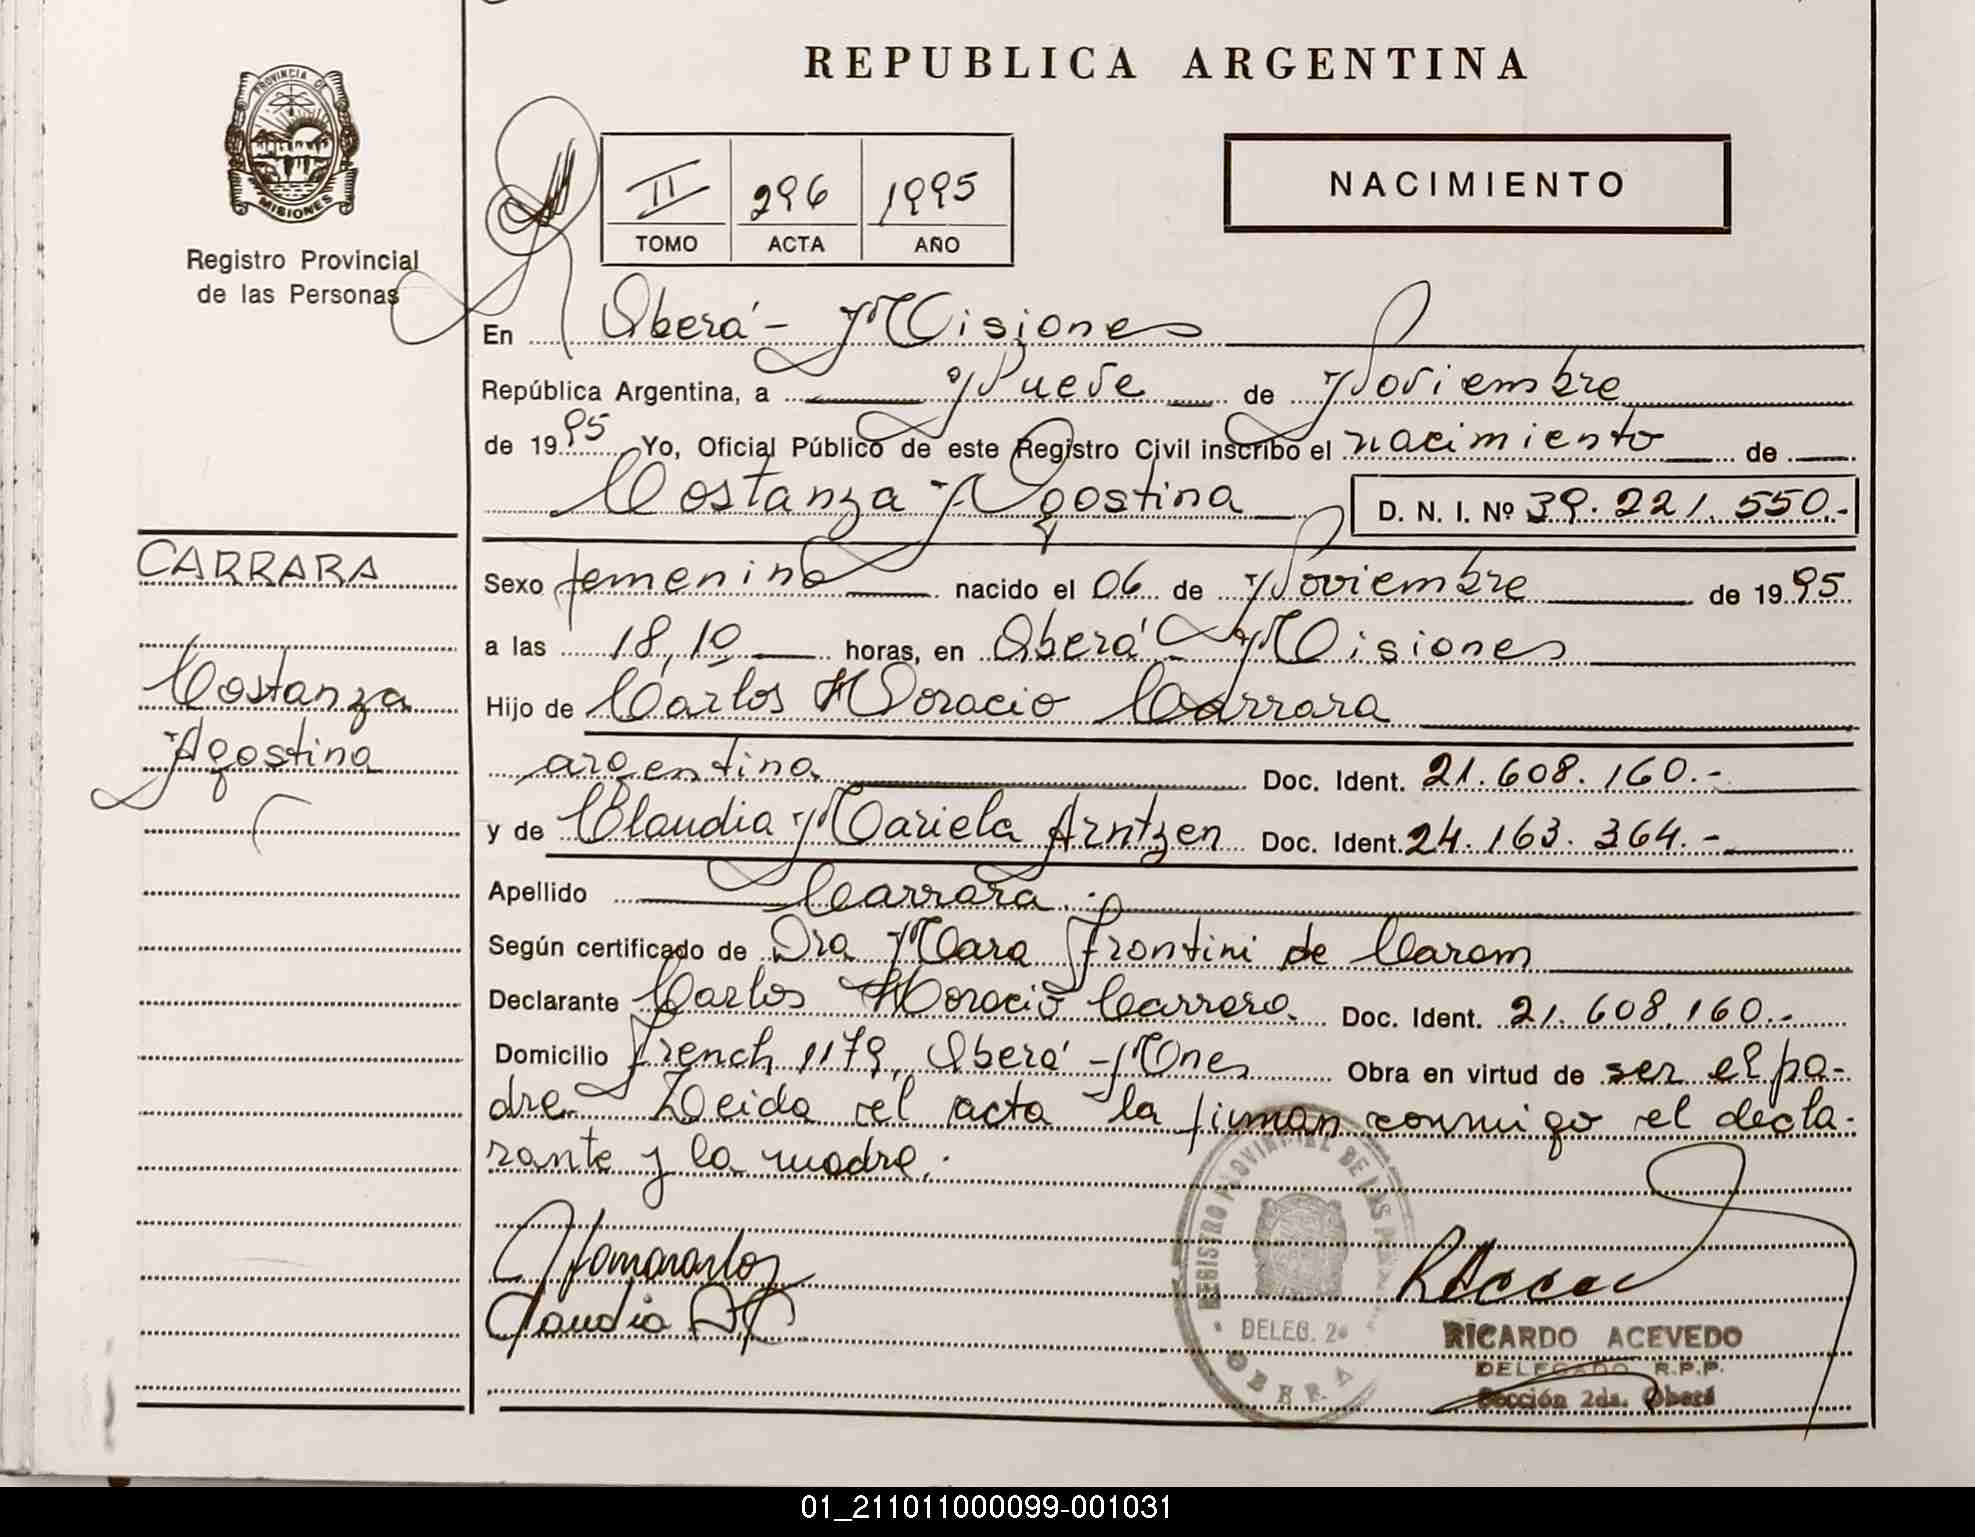 REPUBLICA ARGENTINA
PROVINCIA DE
MISIONES
Registro Provincial
de las Personas
II 296 1995
TOMO ACTA AÑO
NACIMIENTO
En Oberá - Misiones
República Argentina, a Nueve de Noviembre
de 1995 Yo, Oficial Público de este Registro Civil inscribo el nacimiento de
Costanza Agostina D. N. I. Nº 39.221.550.-
CARRARA
Costanza
Agostina
Sexo femenino nacido el 06 de Noviembre de 1995
a las 18,10 horas, en Oberá - Misiones
Hijo de Carlos Horacio Carrara
argentina Doc. Ident. 21.608.160.-
y de Claudia Mariela Arntzen Doc. Ident. 24.163.364.-
Apellido Carrara.-
Según certificado de Dra Mara Frontini de Carom
Declarante Carlos Horacio Carrara. Doc. Ident. 21.608.160.-
Domicilio French 1179, Oberá - Mnes Obra en virtud de ser el pa-
dre. Leida el acta la firman conmigo el decla-
rante y la madre.-
Claudia
REGISTRO PROVINCIAL DE LAS
DELEG. 2ª
OBERA
RICARDO ACEVEDO
DELEGADO R.P.P.
Sección 2da. Oberá
01_211011000099-001031